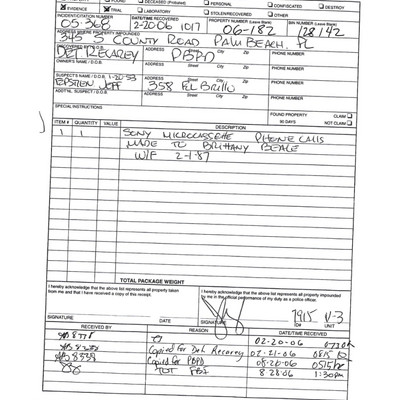 FOUND DECEASED (Probated) PERSONAL CONFISCATED DESTROY
EVIDENCE TRIAL LABORATORIES STOLEN/RECOVERED OTHER
INCIDENT/CITATION NUMBER DATE/TIME RECOVERED PROPERTY NUMBER (Leave Blank) BIN NUMBER (Leave Blank)
05-368 2-20-06 1017 06-182 128142
ADDRESS WHERE PROPERTY IMPOUNDED
345 S COUNTY ROAD PALM BEACH, FL
ADDRESS Street City Zip PHONE NUMBER
DET RECAREY PBPD
OWNER'S NAME / D.O.B. ADDRESS Street City Zip PHONE NUMBER
SUSPECT'S NAME / D.O.B. 1-20-53 ADDRESS Street City Zip PHONE NUMBER
EPSTEIN JEFF 358 El Brillo
ADDT'NL SUSPECT / D.O.B. ADDRESS Street City Zip PHONE NUMBER
SPECIAL INSTRUCTIONS
FOUND PROPERTY CLAIM
90 DAYS NOT CLAIM
ITEM # QUANTITY VALUE DESCRIPTION
1 1 SONY MICROCASSETTE PHONE CALLS
MADE TO BRITTANY BEALE
W/F 2-1-87
TOTAL PACKAGE WEIGHT
I hereby acknowledge that the above list represents all property taken
from me and that I have received a copy of this receipt.
I hereby acknowledge that the above list represents all property impounded
by me in the official performance of my duty as a police officer.
7915 V-3
SIGNATURE DATE SIGNATURE ID# UNIT
RECEIVED BY REASON DATE/TIME RECEIVED
02-20-06
Copied for Det. Recarey 02-21-06 0815
Copied for PBPD 08-20-06 0515
TOT FBI 8-28-06 1:30pm